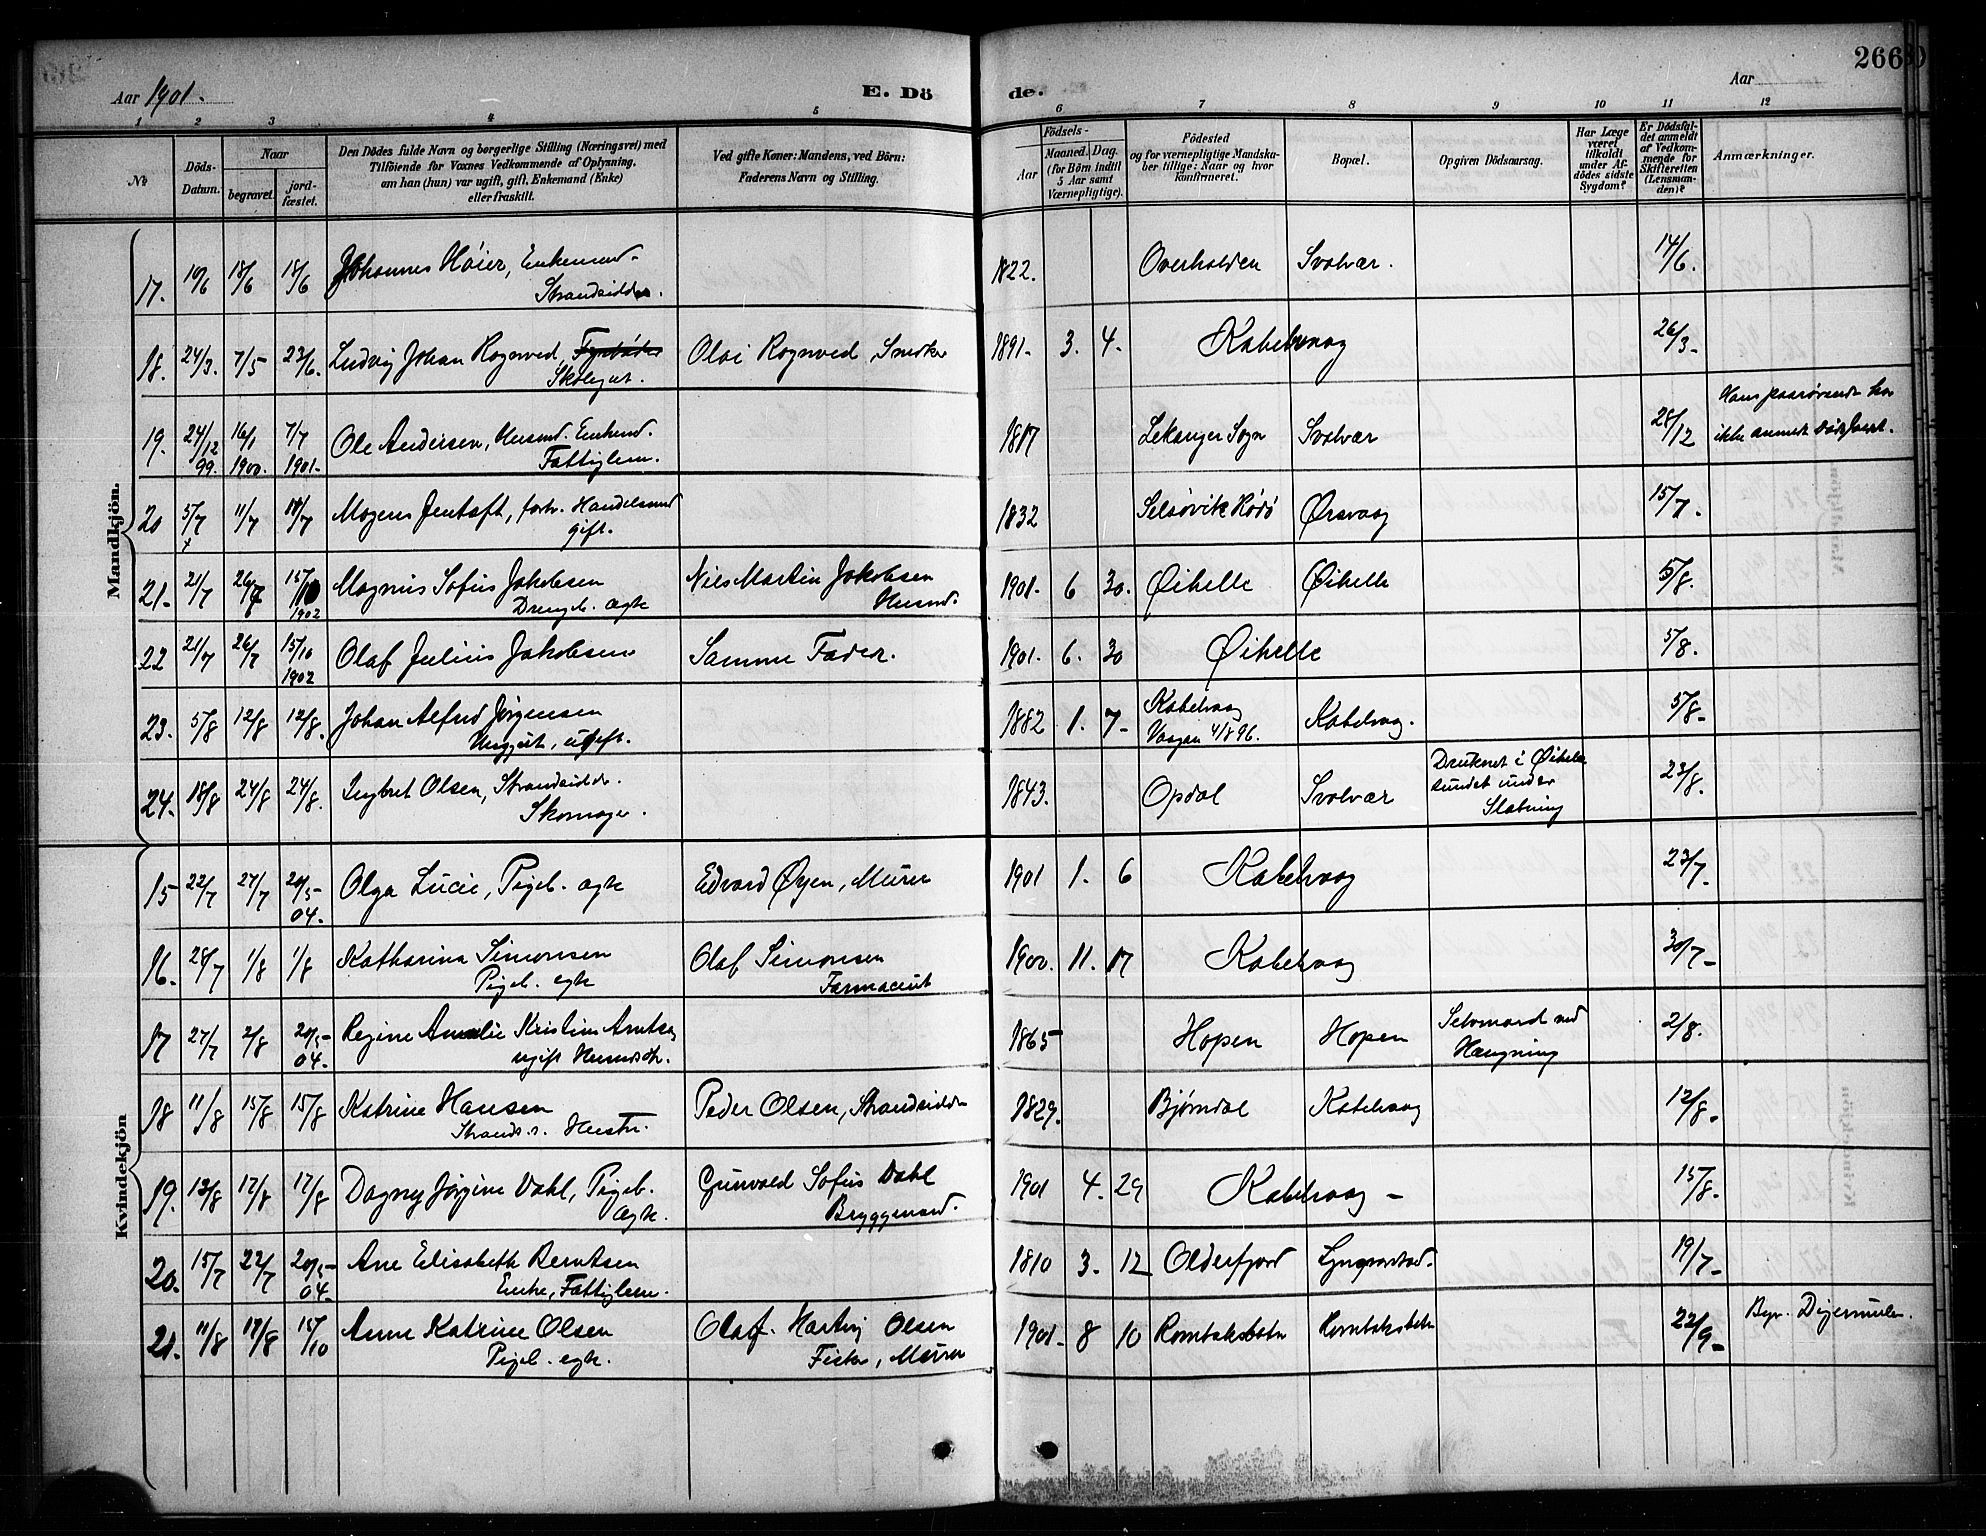 Aar 1901.
E. Dö
de.
Aar
266
1 2 3 4 5 6 7 8 9 10 11 12
№
Döds-Datum.
Naar
begravet.
jord-fæstet.
Den Dödes fulde Navn og borgerlige Stilling (Næringsvei) med
Tilföiende for Voxnes Vedkommende af Oplysning,
om han (hun) var ugift, gift, Enkemand (Enke)
eller fraskilt.
Ved gifte Koner: Mandens, ved Börn:
Faderens Navn og Stilling.
Födsels-
Aar
Maaned. Dag.
(for Börn indtil
5 Aar samt
Værnepligtige).
Födested
og for værnepligtige Mandska-
ber tillige: Naar og hvor
konfirmeret.
Bopæl.
Opgiven Dödsaarsag.
Har Læge
været
tilkaldt
under Af-
dödes sidste
Sygdom?
Er Dödsfal-
det anmeldt
af Vedkom-
mende for
Skifteretten
(Lensman-
den)?
Anmærkninger.
Mandkjön.
17. 10/6 18/6 18/6 Johannes Høier, Enkemand. 1822. Overhalden Svolvær. 14/6.
Strandsidder.
18. 24/3. 7/5 23/6. Ludvig Johan Rognved, Olai Rognved, Snedker 1891. 3. 4. Kabelvaag 26/3.
Skolegut.
19. 24/12 99. 16/1 1900. 7/7 1901. Ole Andersen, Husmd. Enkemd. 1817 Lekanger Sogn Svolvær 28/12 Hans paarørende har
Fattiglem. ikke anmeldt Dødsfaldet.
20 5/7 11/7 11/7 Mogens Jentoft, forhv. Handelsmand 1832 Selsøvik Rødø Ørsvaag 15/7.
gift.
21. 21/7 26/7 15/10 1902 Magnus Sofus Jakobsen Niels Martin Jakobsen 1901. 6 30. Øihelle Øihelle 5/8.
Drengeb. ægte Husmd.
22 21/7 26/7 15/10 1902 Olaf Julius Jakobsen Samme Fader. 1901. 6. 30 Øihelle 5/8.
23. 5/8 12/8 12/8. Johan Alfred Jørgensen 1882 1. 7. Kabelvaag Kabelvaag. 5/8.
Unggut, ugift. Vaagan 4/8 96.
24. 18/8 24/8 24/8. Ingbret Olsen, Strandsidder. 1843. Opdal Svolvær Druknet i Øihelle 23/8.
Skomager. sundet under
Slabning
Kvindekjön
15 22/7 27/7 20/5 04. Olga Lucie, Pigeb. ægte Edvard Øyen, Murer 1901 1. 6 Kabelvaag 23/7.
16. 28/7 1/8 1/8 Katharina Simonsen Olaf Simonsen 1900. 11. 17 Kabelvaag 30/7
Pigeb. ægte Farmaceut
17 27/7 2/8 20/5 04. Regine Amalie Kristine Arntsen 1865 Hopen Hopen Selvmord ved 2/8.
ugift Husmdsdtr. Hængning
18 11/8 15/8 15/8 Katrine Hansen Peder Olsen, Strandsidder 1829. Bjørndal Kabelvaag 12/8.
Strands.s. Hustr.
19. 13/8 17/8 17/8 Dagny Jørgine Dahl, Pigeb. Gunvald Sofus Dahl 1901 4. 29 Kabelvaag 15/8.
ægte. Bryggemand.
20. 15/7 22/7 20/5 04. Ane Elisabeth Berntsen 1810 3. 12 Olderfjord Lyngvarstad. 19/7
Enke, Fattiglem.
21. 11/8 17/8 15/10 Anne Katrine Olsen Olaf Hartvig Olsen 1901. 8 10 Romtaksbotn Romtaksbotn 22/9 Begr. Digermulen.
Pigeb. ægte. Fisker, Murer